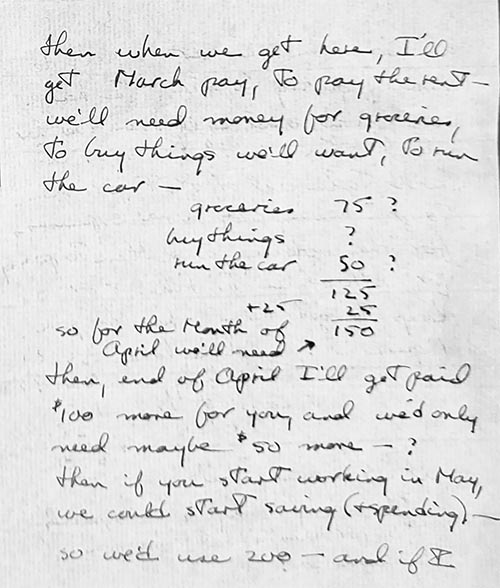 then when we get here, I'll
get March pay, To pay the rent —
we'll need money for groceries,
To buy things we'll want, To run
the car —
groceries 75 ?
buy things ?
run the car 50 ?
125
+25 25
so for the Month of 150
April we'll need ↗
then, end of April I'll get paid
$100 more for you, and we'd only
need maybe $50 more — ?
then if you start working in May,
we could start saving (+spending) —
so we'd use 200 — and if I